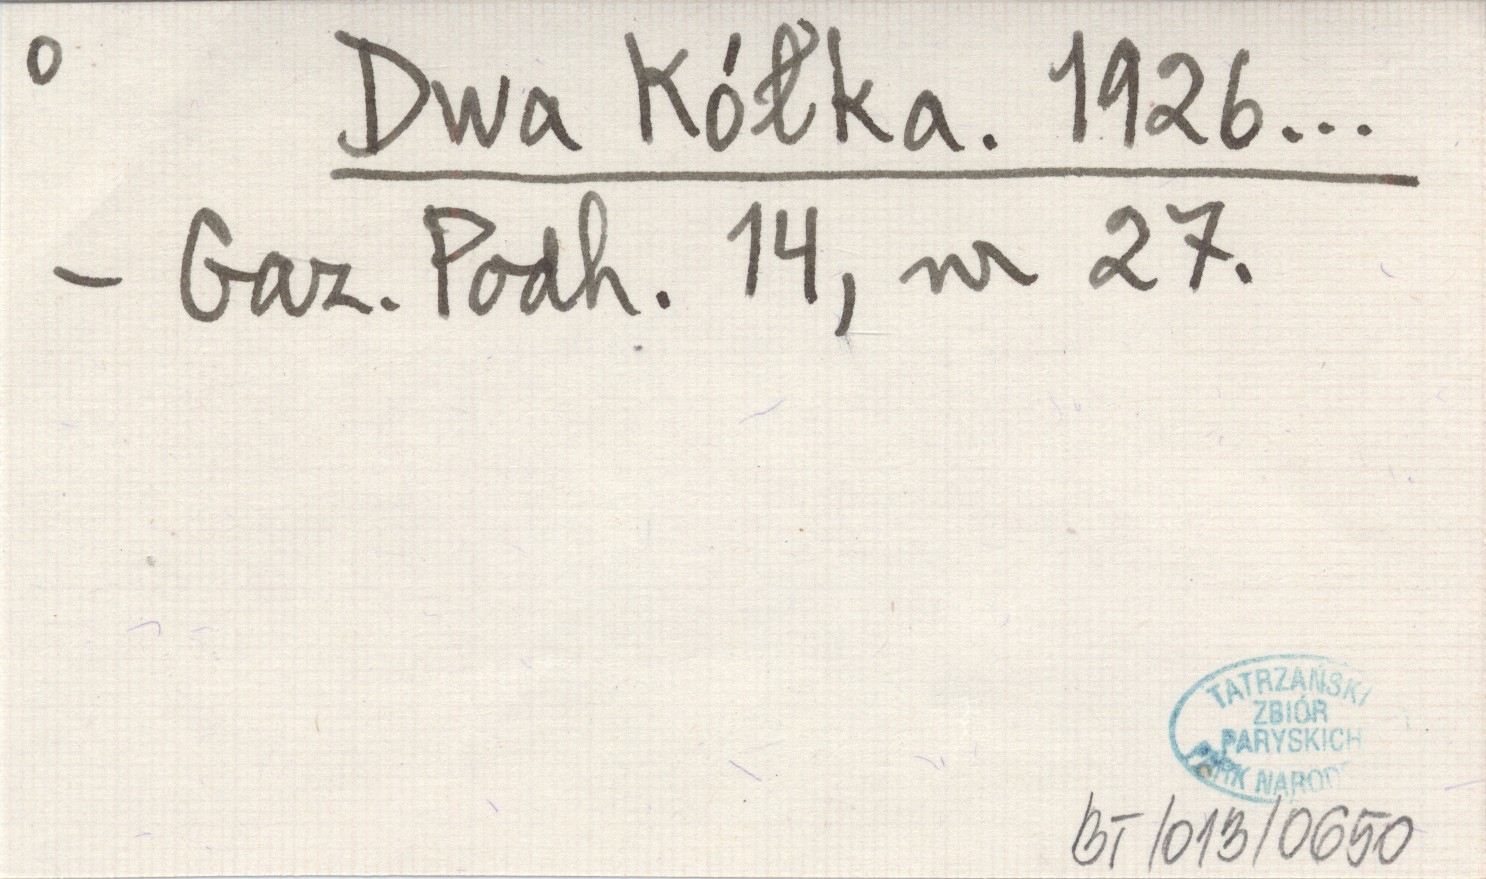 o Dwa Kółka. 1926...
– Gaz. Podh. 14, nr 27.
TATRZAŃSKI
ZBIÓR
PARYSKICH
PARK NAROD
BT/013/0650